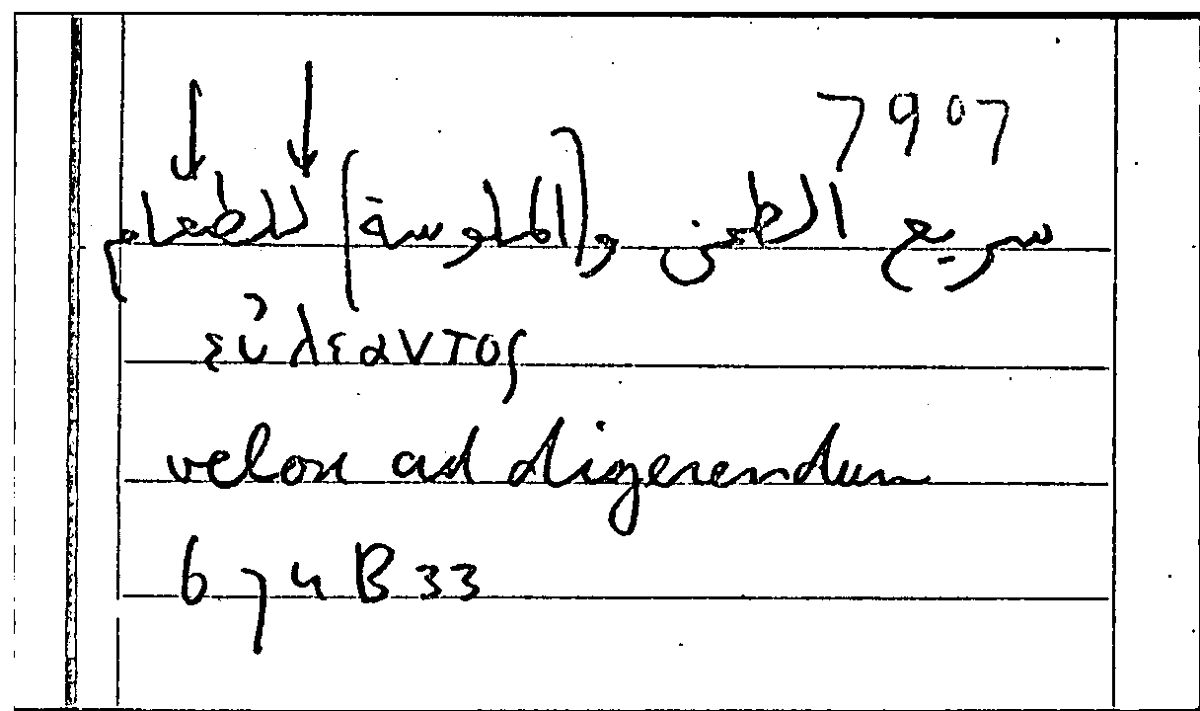 7907
سريع الطحن و(الملوسة) للطعام
εὐλεαντος
velox ad digerendum
674B33